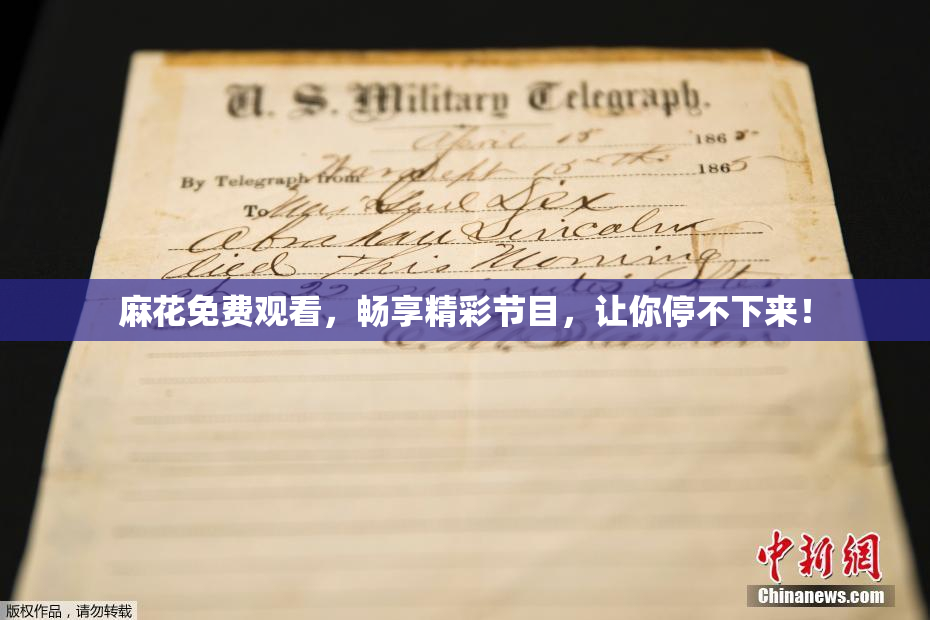 U. S. Military Telegraph.
April 15 1865
By Telegraph from War Dept 15th 1865
To Maj Genl Dix
Abraham Lincoln
died This Morning
at 22 minutes after
麻花免费观看，畅享精彩节目，让你停不下来！
E. M. Stanton
中新網
Chinanews.com
版权作品，请勿转载